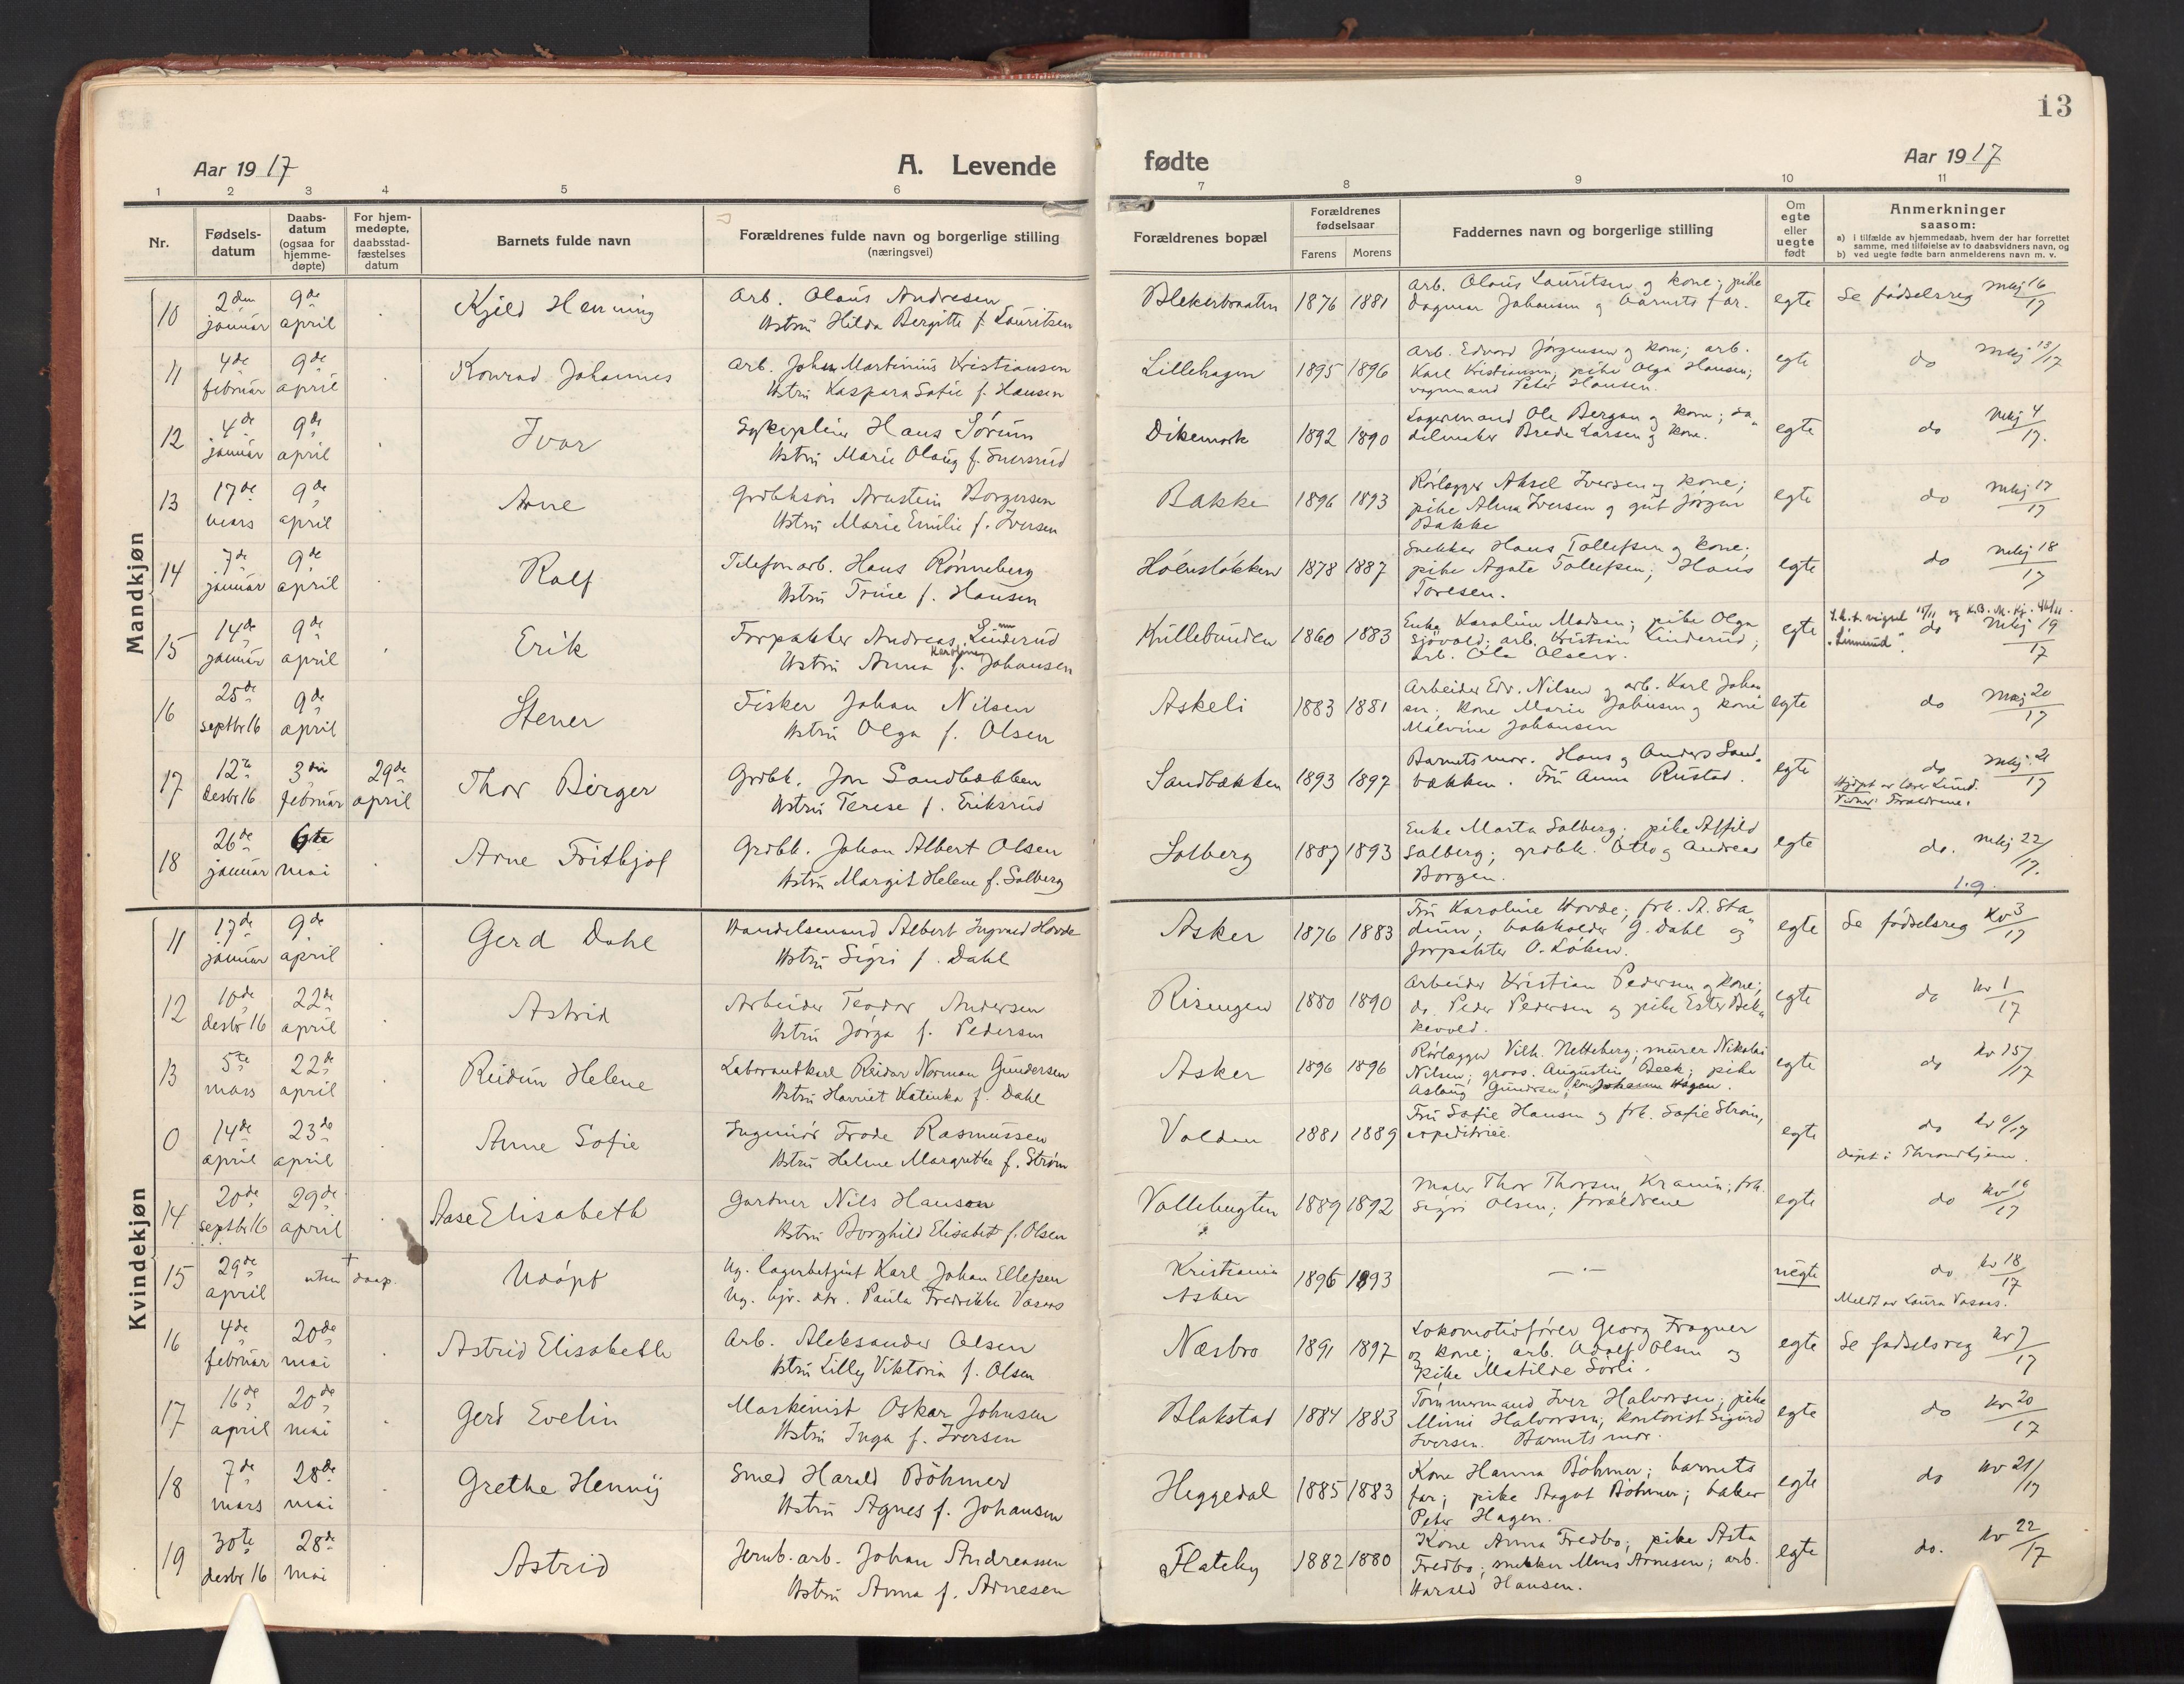 13
Aar 1917
A. Levende
fødte
Aar 1917
1 2 3 4 5 6 7 8 9 10 11
Nr.
Fødsels-
datum
Daabs-
datum
(ogsaa for
hjemme-
døpte)
For hjem-
medøpte,
daabsstad-
fæstelses
datum
Barnets fulde navn
Forældrenes fulde navn og borgerlige stilling
(næringsvei)
Forældrenes bopæl
Forældrenes
fødselsaar
Farens Morens
Faddernes navn og borgerlige stilling
Om
egte
eller
uegte
født
Anmerkninger
saasom:
a) i tilfælde av hjemmedaab, hvem der har forrettet
samme, med tilføielse av to daabsvidners navn, og
b) ved uegte fødte barn anmelderens navn m. v.
Mandkjøn
10 2den januar 9de april Kjeld Henning
Arb. Olaus Andresen
Hstru Hilda Bergitte f. Lauritsen
Blekerbraaten 1876 1881
Arb. Olaus Lauritsen og kone; pike
Dagmar Johansen og barnets far.
egte Se fødselsreg mkj 16/17
11 4de februar 9de april Konrad Johannes
Arb. Johan Martinius Kristiansen
Hstru Kaspara Sofie f. Hansen
Lillehagen 1895 1896
Arb. Edvard Jørgensen og kone; arb.
Karl Kristiansen; pike Olga Hansen;
vognmand Peter Hansen.
egte do mkj 13/17
12 4de januar 9de april Ivar
Sykepleier Hans Sørum
Hstru Marie Olaug f.
Dikemark 1892 1890
Lagermand Ole Bergan og kone; sa-
delmaker Brede Larsen og kone.
egte do mkj 4/17.
13 17de mars 9de april Arne
Grdbksøn Arnstein Borgersen
Hstru Marie Emilie f. Iversen
Bakke 1896 1893
Rørlægger Aksel Iversen og kone;
pike Alma Iversen og gut Jørgen
Bakke
egte do mkj 17/17
14 7de januar 9de april Rolf
Telefonarb. Hans Rønneberg
Hstru Trine f. Hansen
Hølnsløkken 1878 1887
Snekker Hans Tollefsen og kone;
pike Agate Tollefsen; Hans
Toresen.
egte do mkj 18/17
15 14de januar 9de april Erik
Forpakter Andreas Linderud
Hstru Anna Karoline f. Johansen
Kullebunden 1860 1883
Enke Karoline Madsen; pike Olga
Sjøvold; arb. Kristian Linderud;
arb. Ole Olsen.
egte do mkj 19/17
"Linnerud".
16 25de septbr 16 9de april Stener
Fisker Johan Nilsen
Hstru Olga f. Olsen
Askeli 1883 1881
Arbeider Edv. Nilsen og arb. Karl Johan-
sen; kone Marie Johnsen og kone
Malvine Johansen
egte do mkj 20/17
17 12te desbr 16 3die februar 29de april Thor Birger
Grdbk. Jon Sandbækken
Hstru Terese f. Eriksrud
Sandbækken 1893 1897
Barnets mor. Hans og Anders Sand-
bækken. Fru Anna Rustad.
egte do mkj 21/17
Hjdøpt av lærer Lund.
Vidner: Forældrene.
18 26de januar 6te mai Arne Fritbjof
Grdbk. Johan Albert Olsen
Hstru Margit Helene f. Solberg
Solberg 1887 1893
Enke Marta Solberg; pike Alfild
Solberg; grdbk. Otto og Andreas
Borgen.
egte do. mkj 22/17.
1.9.
Kvindekjøn
11 17de januar 9de april Gerd Dahl
Handelsmand Albert Ingvald Hovde
Hstru Sigri f. Dahl
Asker 1876 1883
Fru Karoline Hovde; frk. A. Sta-
dum; bokholder G. Dahl og
forpakter O. Løken.
egte Se fødselsreg Kv 3/17
12 10de desbr 16 22de april Astrid
Arbeider Teodor Andersen
Hstru Jørga f. Pedersen
Risengen 1880 1890
Arbeider Kristian Pedersen og kone;
do. Peder Pedersen og pike Ester Bek-
kevold.
egte do kv 1/17
13 5te mars 22de april Reidun Helene
Laborantkarl Reidar Norman Gundersen
Hstru Harriet Katinka f. Dahl
Asker 1896 1896
Rørlægger Vilh. Netteberg; murer Nikolai
Nilsen; gross. Augustin Beck; pike
Aslaug Gundersen; Johanne Hagen.
egte do kv 15/17
0 14de april 23de april Anne Sofie
Ingeniør Frode Rasmussen
Hstru Helene Margrethe f. Strøm
Volden 1881 1889
Fru Sofie Hansen og frk. Sofie Strøm,
expeditrice.
egte do kv 6/17
Døpt i Throndhjem.
14 20de septbr 16 29de april Aase Elisabeth
Gartner Nils Hansen
Hstru Borghild Elisabet f. Olsen
Vollebugten 1889 1892
Maler Thor Thorsen, Krania; frk.
Sigri Olsen; forældrene
egte do kv 16/17
15 29de april uten + daap. Udøpt
Ug. lagerbetjent Karl Johan Ellefsen
Ug. Paula Fredrikke Vasaas
Kristiania
Asker
1896 1893 —·— uegte do kv 18/17
Meldt av Laura Vasaas.
16 4de februar 20de mai Astrid Elisabeth
Arb. Aleksander Olsen
Hstru Lilly Viktoria f. Olsen
Næsbro 1891 1897
Lokomotivfører Georg Fragner
og kone; arb. Adolf Olsen og
pike Matilde Sørli.
egte Se fødselsreg kv 7/17
17 16de april 20de mai Gerd Evelin
Maskinist Oskar Johnsen
Hstru Inga f. Iversen
Blakstad 1884 1883
Tømmermand Iver Halvorsen; pike
Mimi Halvorsen; kontorist Sigurd
Iversen. Barnets mor.
egte do kv 20/17
18 7de mars 28de mai Grethe Henny
Smed Harald Böhmer
Hstru Agnes f. Johansen
Heggedal 1885 1883
Kone Hanna Böhmer; barnets
far; pike Aagot Böhmer; baker
Peter Hagen.
egte do kv 21/17
19 30te desbr 16 28de mai Astrid
Jernb. arb. Johan Andreassen
Hstru Anna f. Arnesen
Flateby 1882 1880
Kone Anna Fredbo; pike Asta
Fredbo; snekker Mons Arnesen; arb.
Harald Hansen.
egte do. kv 22/17